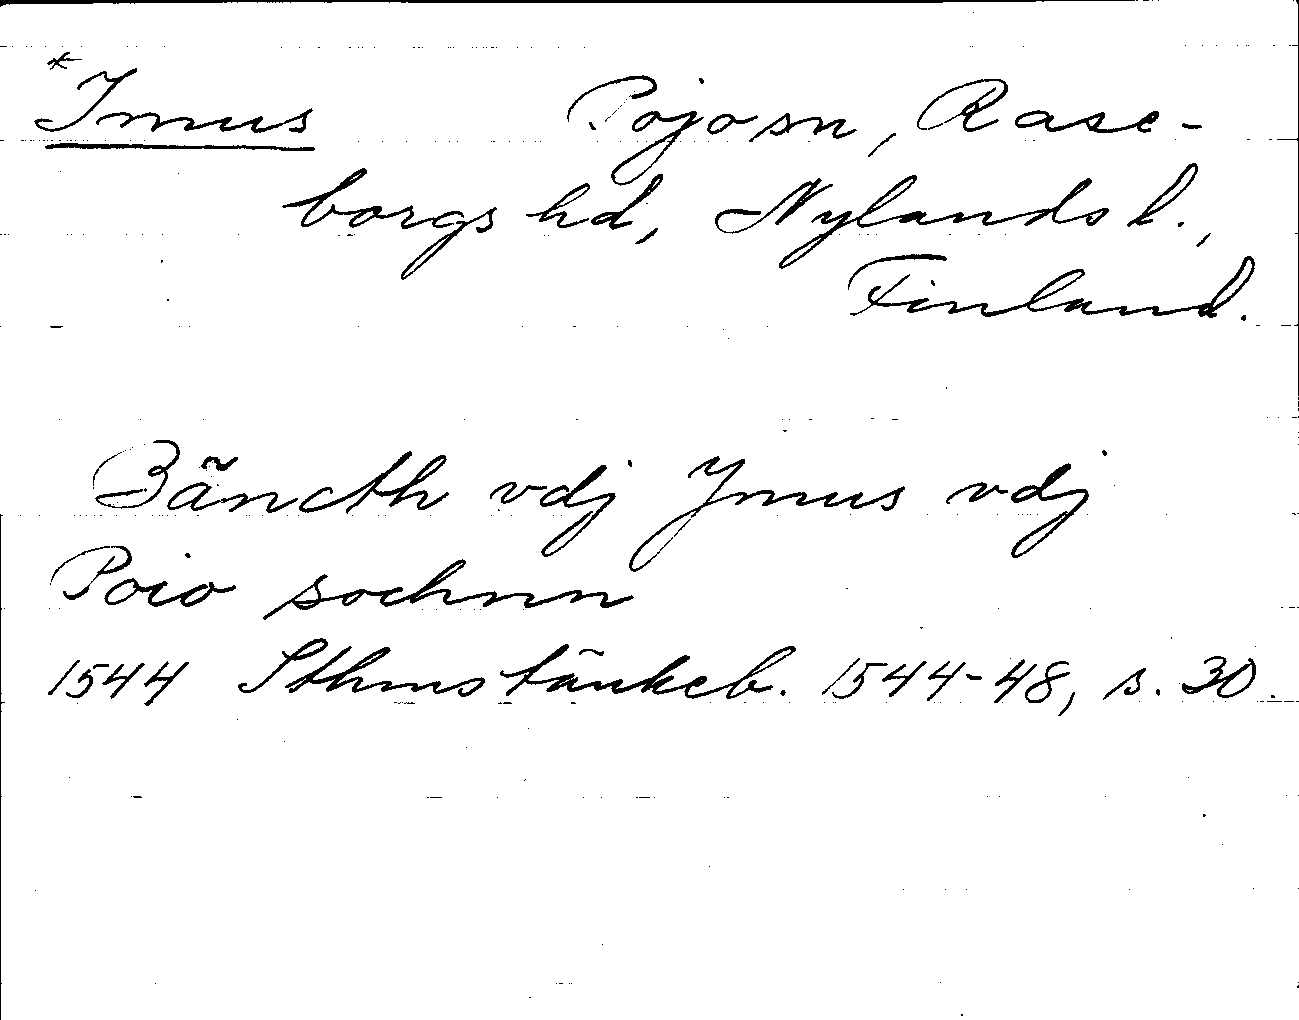 *Imus Pojo sn, Rase-
borgs hd, Nylands l.,
Finland.
Bäncth vdj Jmus vdj
Poio sochnn
1544 Sthms tänkeb. 1544-48, s. 30.